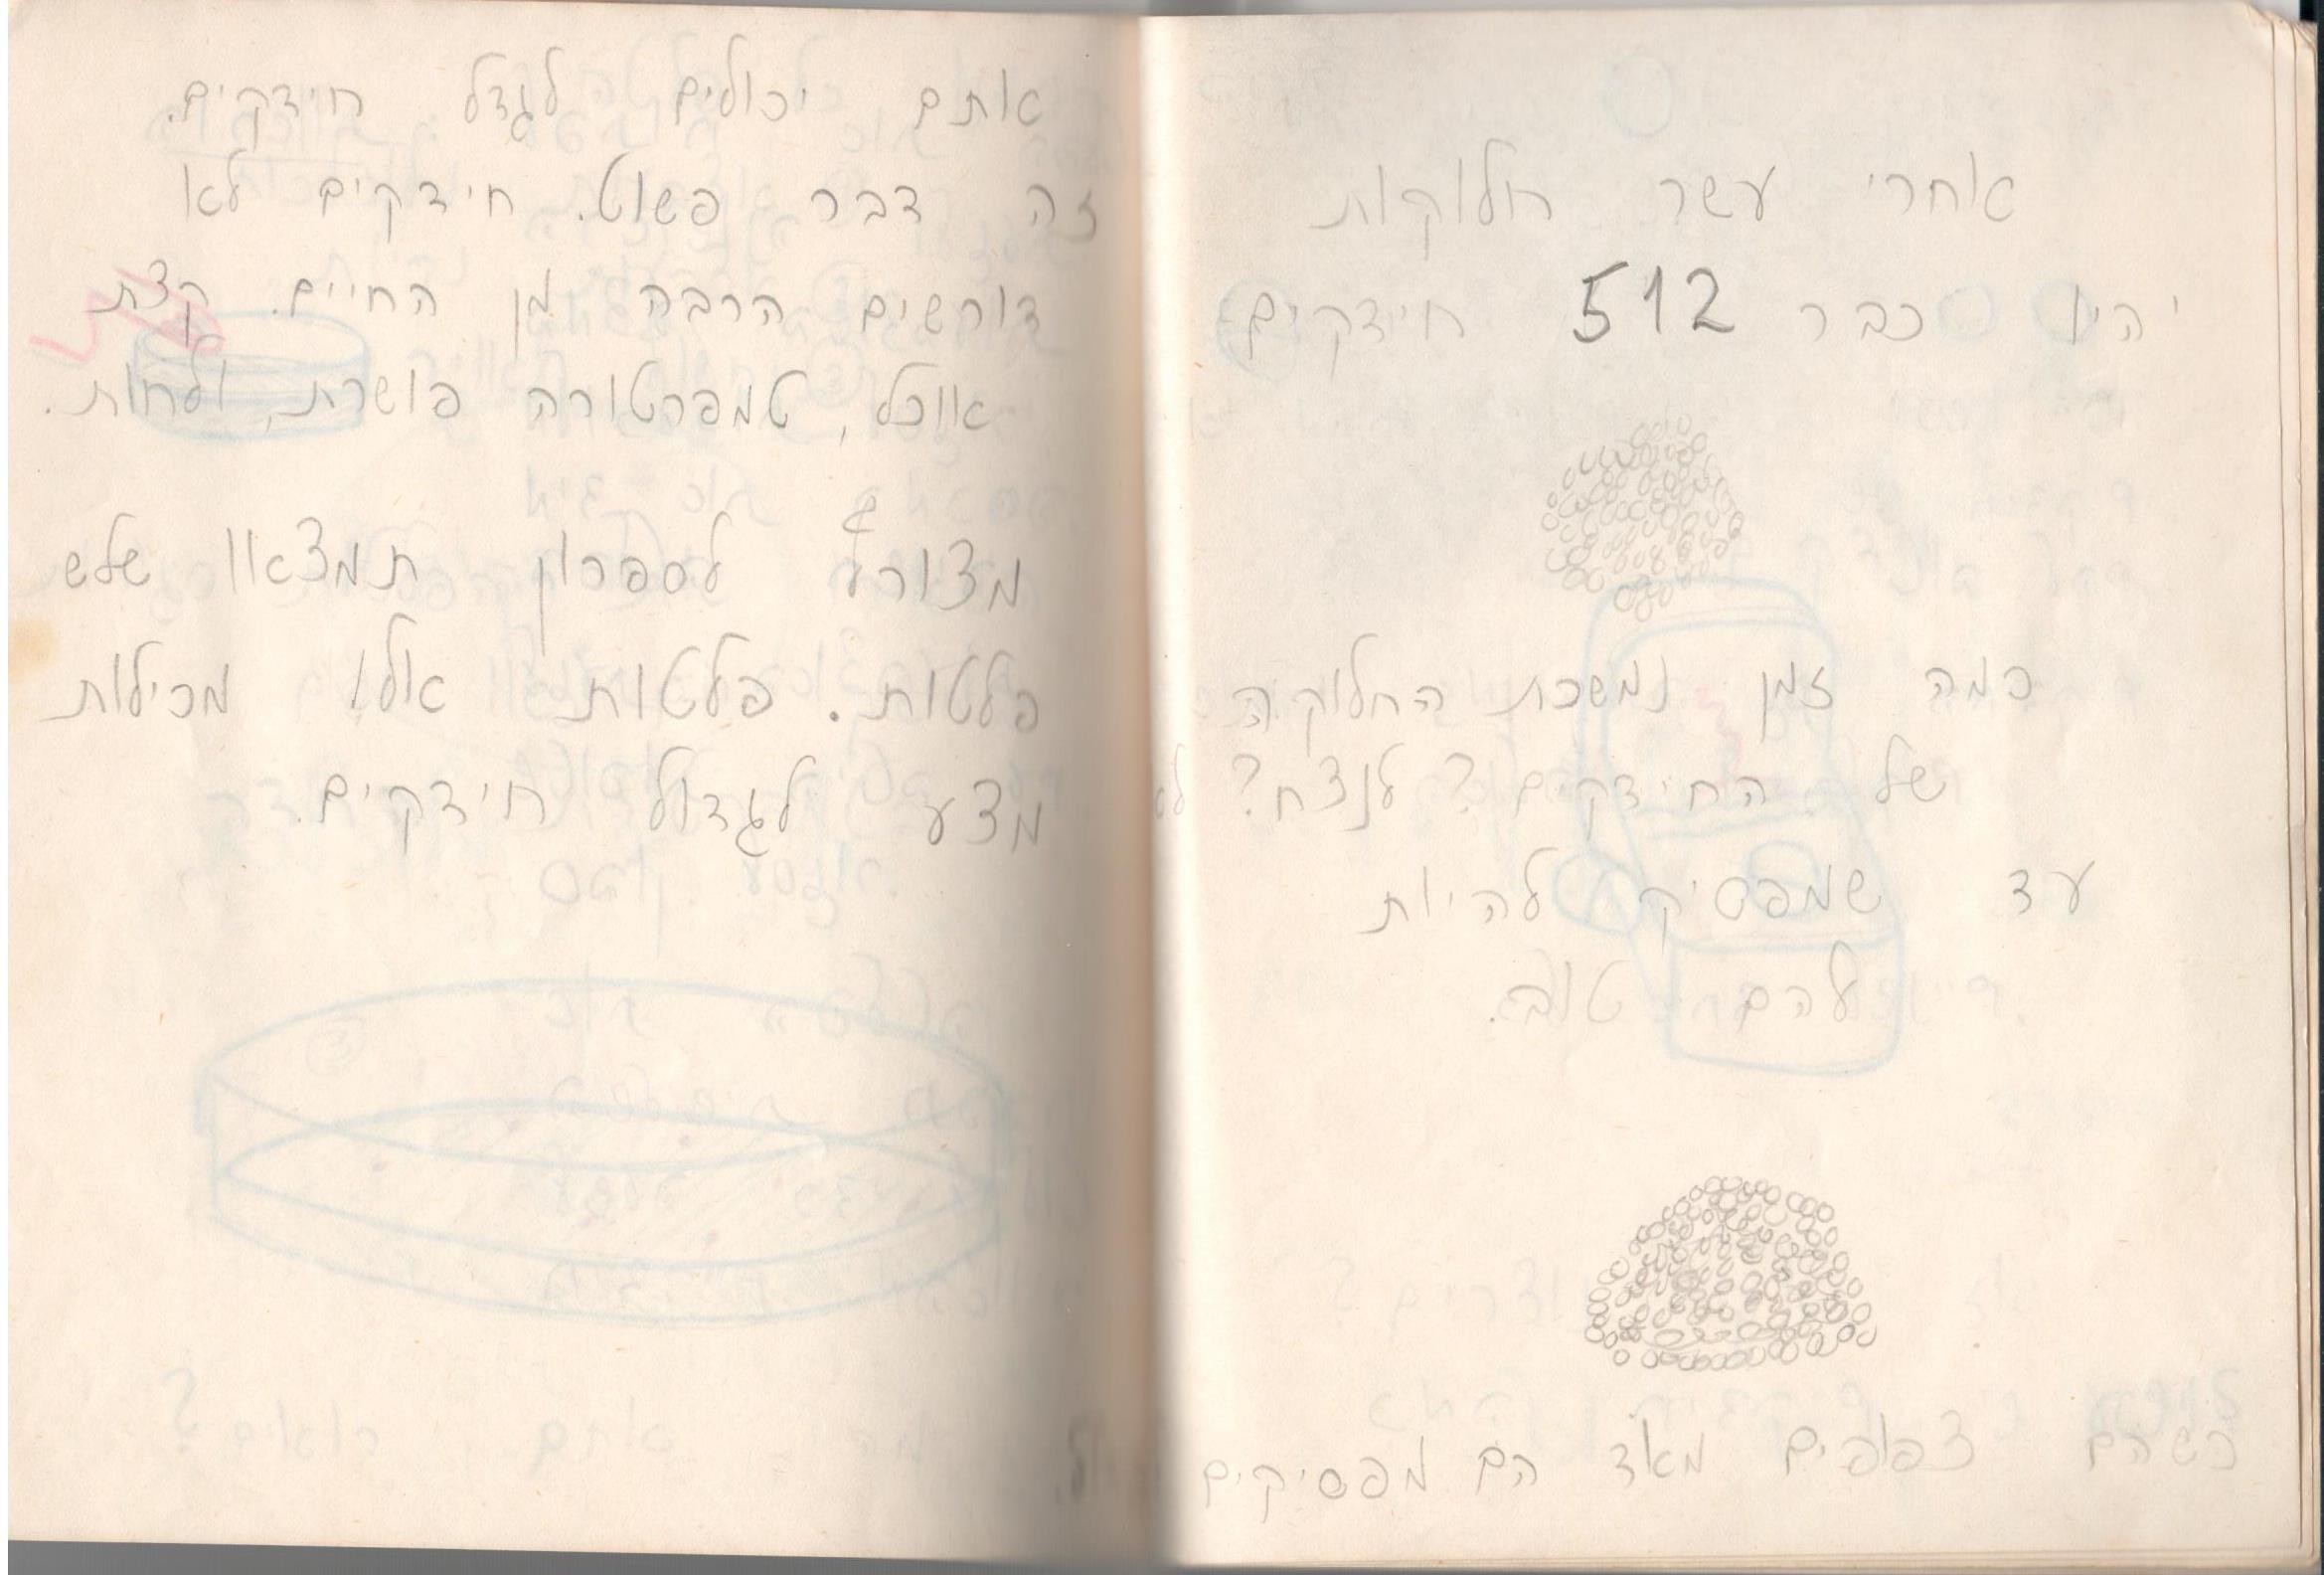 אחרי עשר חלוקות
יהיו כבר 512 חידקים
כמה זמן נמשכת החלוקה
של החידקים? לנצח? לא
עד שמפסיק להיות
להם טוב.
כשהם צפופים מאד הם מפסיקים
אתם יכולים לגדל חידקים.
זה דבר פשוט. חידקים לא
דורשים הרבה מן החיים. קצת
אווכל, טמפרטורה פושרת, ולחות.
מצורף לספרון תמצאו שלש
פלטות. פלטות אלו מכילות
מצע לגדול חידקים.